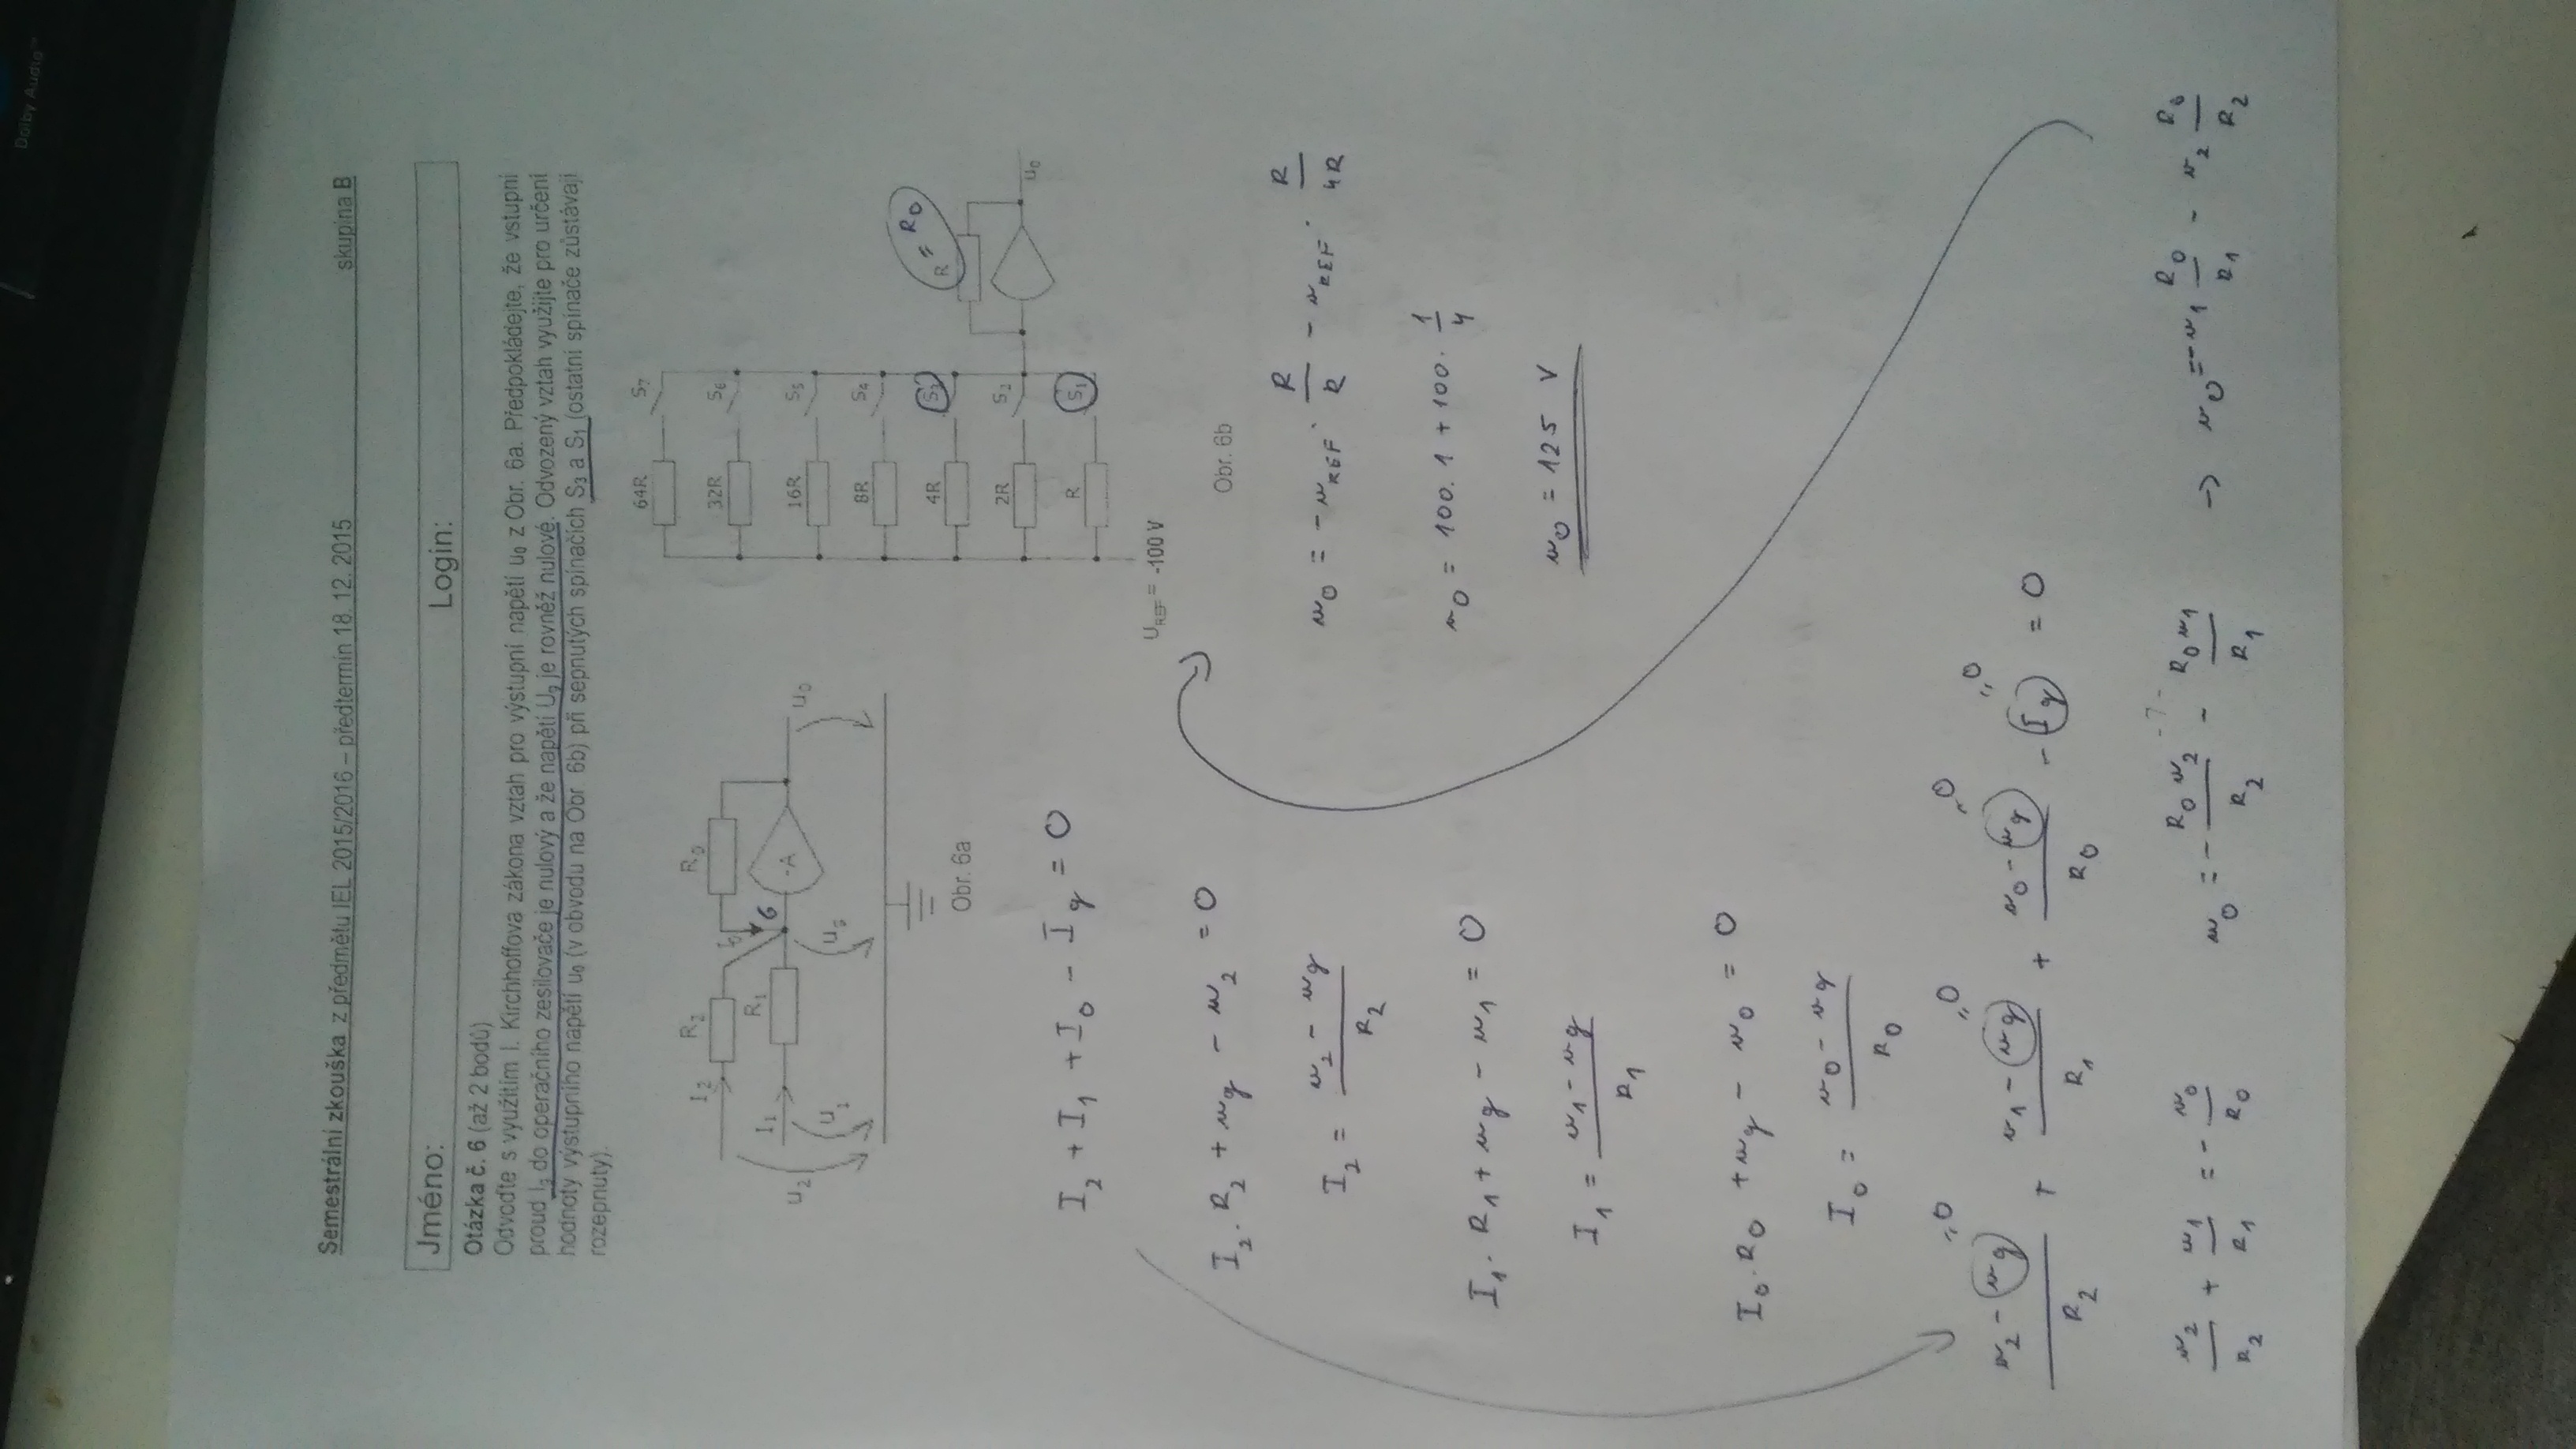 Dolby Audio™
Semestrální zkouška z předmětu IEL 2015/2016 – předtermín 18. 12. 2015 skupina B
Jméno: Login:
Otázka č. 6 (až 2 bodů)
Odvoďte s využitím I. Kirchhoffova zákona vztah pro výstupní napětí u₀ z Obr. 6a. Předpokládejte, že vstupní
proud I₉ do operačního zesilovače je nulový a že napětí U₉ je rovněž nulové. Odvozený vztah využijte pro určení
hodnoty výstupního napětí u₀ (v obvodu na Obr. 6b) při sepnutých spínačích S₃ a S₁ (ostatní spínače zůstávají
rozepnuty).
I₂ R₂ I₀ R₀
I₁ R₁ G -A
u₂ u₁ u₉ u₀
Obr. 6a
64R S₇
32R S₆
16R S₅
8R S₄
4R S₃
2R S₂
R S₁
R = R₀
u₀
U_REF = -100 V
Obr. 6b
I₂ + I₁ + I₀ - I_g = 0
I₂ . R₂ + u_g - u₂ = 0
I₂ = (u₂ - u_g) / R₂
I₁ . R₁ + u_g - u₁ = 0
I₁ = (u₁ - u_g) / R₁
I₀ . R₀ + u_g - u₀ = 0
I₀ = (u₀ - u_g) / R₀
u₀ = - u_REF . R/R - u_REF . R/4R
u₀ = 100 . 1 + 100 . 1/4
u₀ = 125 V
=0 =0 =0 =0
(u₂ - u_g) / R₂ + (u₁ - u_g) / R₁ + (u₀ - u_g) / R₀ - I_g = 0
- 7 -
u₂/R₂ + u₁/R₁ = - u₀/R₀ u₀ = - R₀ u₂ / R₂ - R₀ u₁ / R₁ → u₀ = - u₁ R₀/R₁ - u₂ R₀/R₂